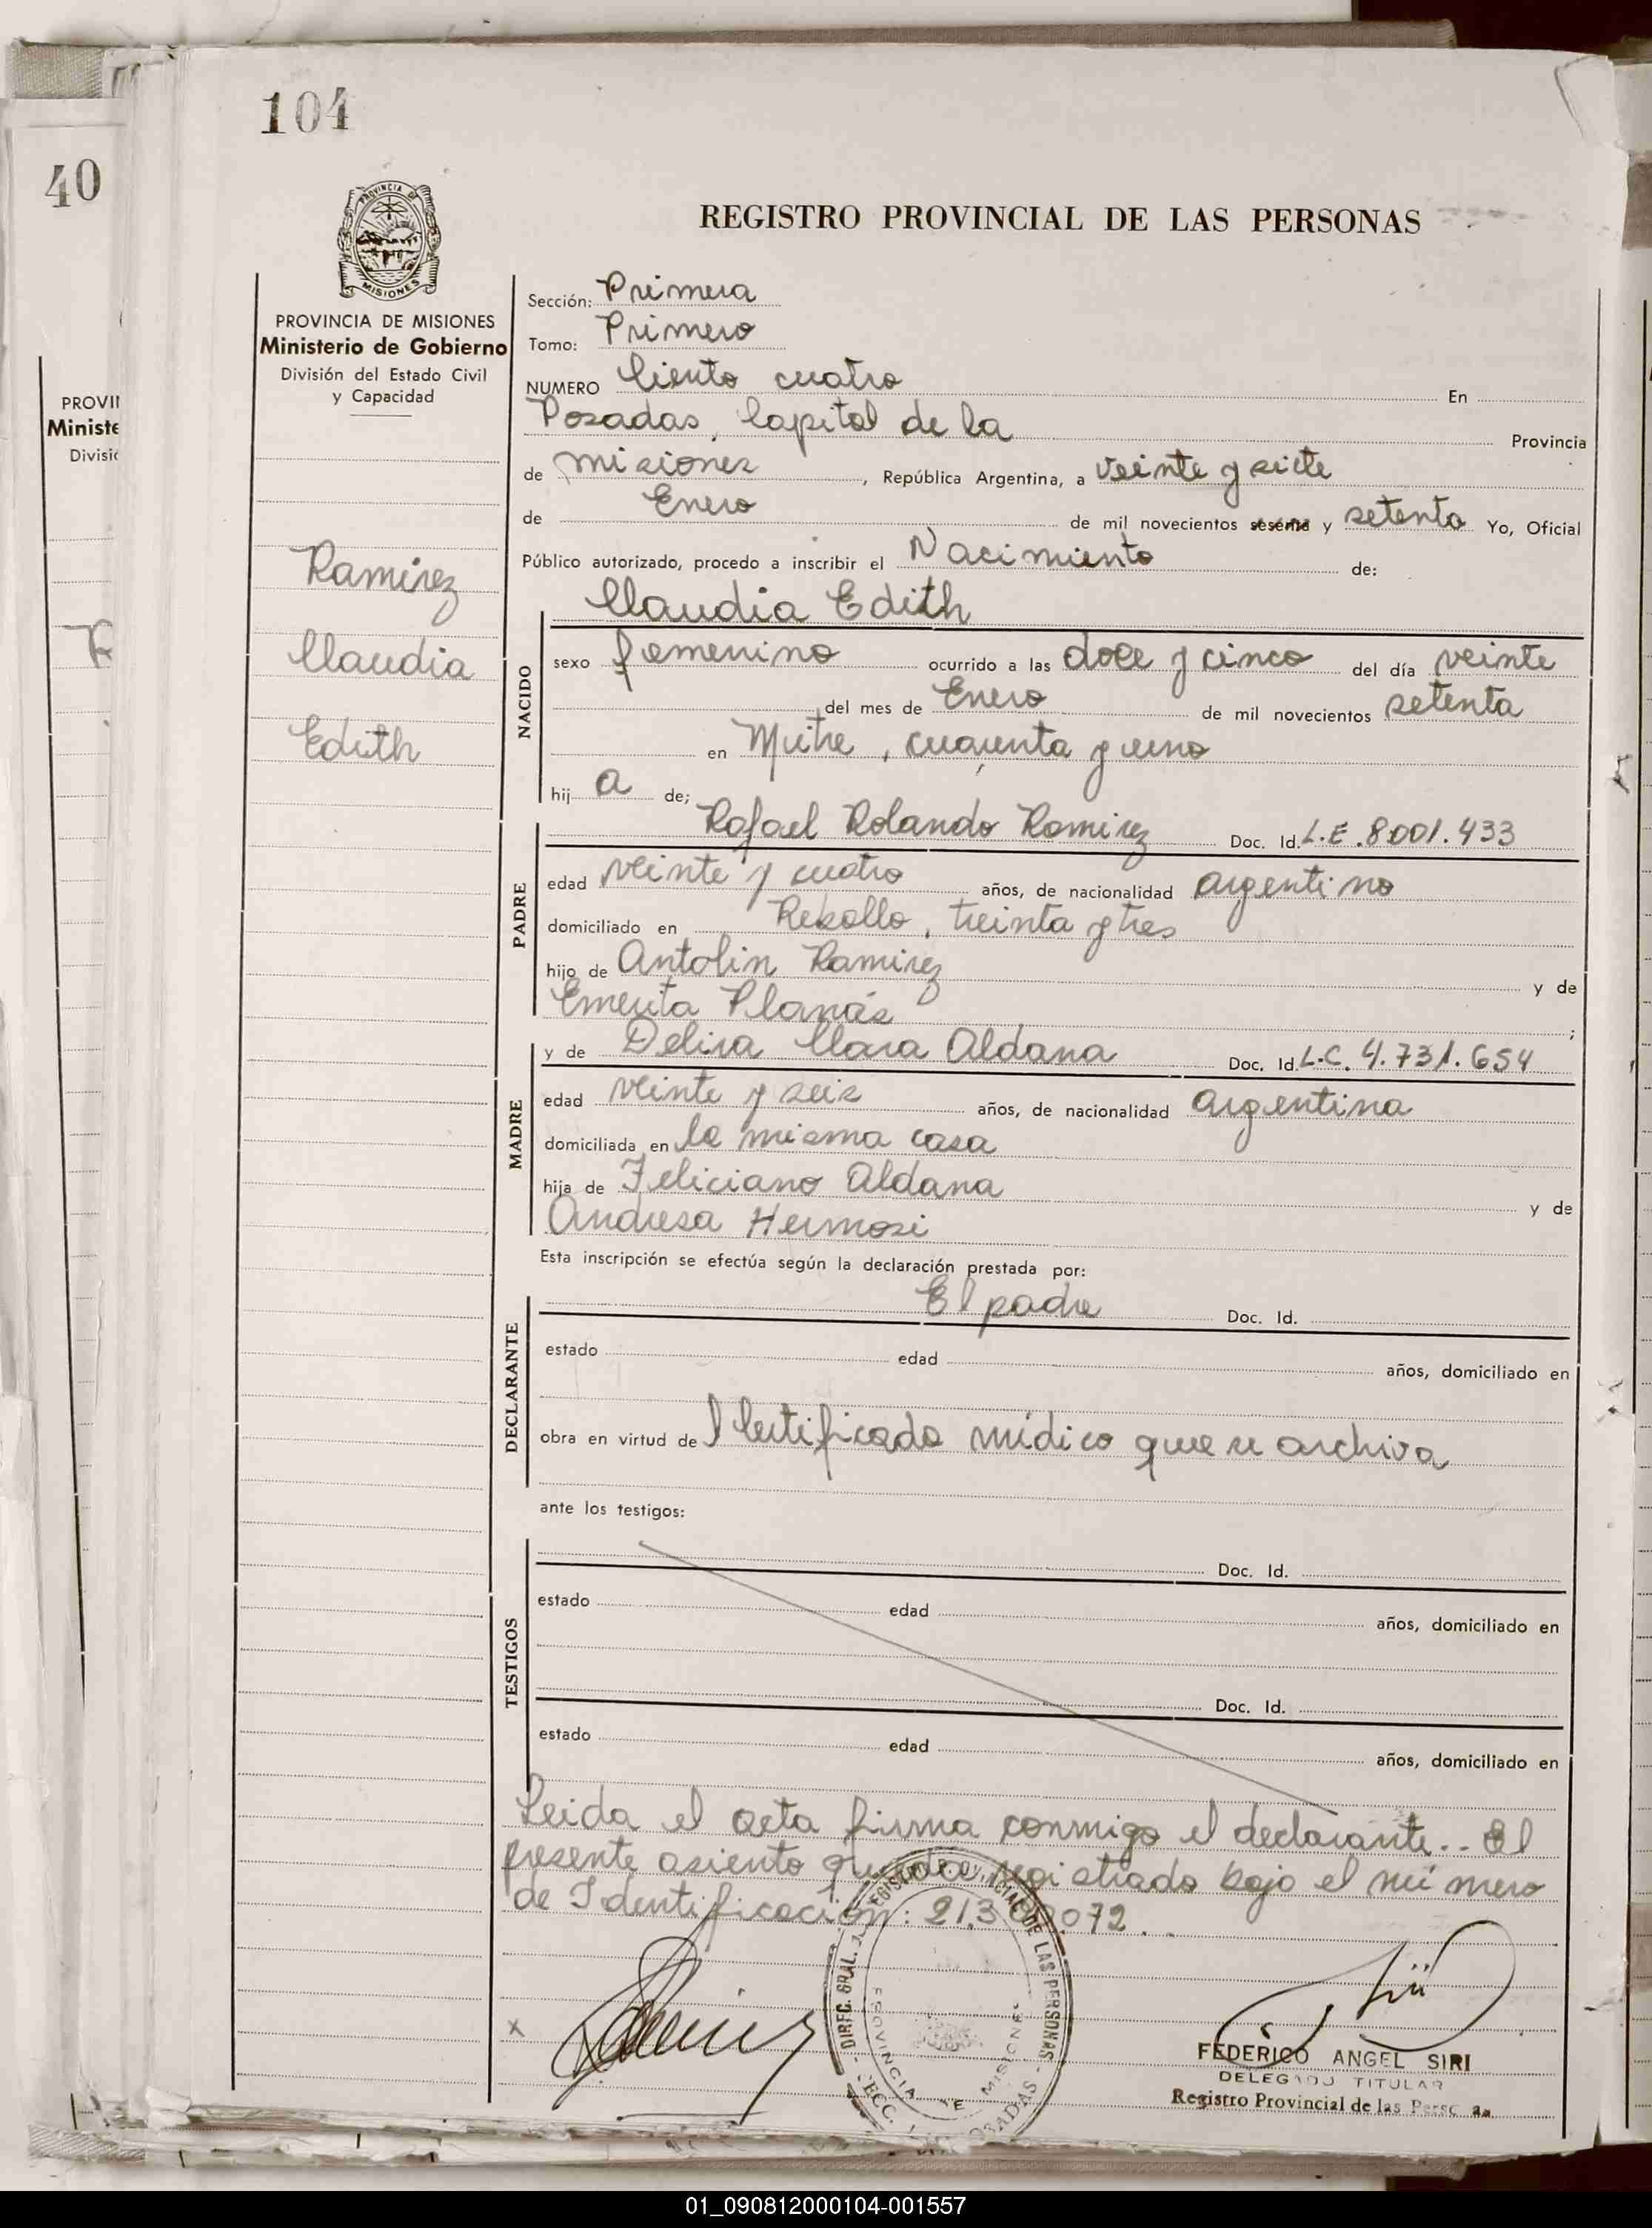 104
40
PROVINCIA DE MISIONES
REGISTRO PROVINCIAL DE LAS PERSONAS
PROVINCIA DE MISIONES
Ministerio de Gobierno
División del Estado Civil
y Capacidad
PROVI
Ministe
Divisió
Ramirez
Claudia
Edith
Sección: Primera
Tomo: Primero
NUMERO Ciento cuatro En
Posadas, Capital de la Provincia
de Misiones, República Argentina, a veinte y siete
de Enero de mil novecientos sesenta y setenta Yo, Oficial
Público autorizado, procedo a inscribir el Nacimiento de:
Claudia Edith
NACIDO
sexo femenino ocurrido a las doce y cinco del día veinte
del mes de Enero de mil novecientos setenta
en Mitre, cuarenta y uno
hija de;
PADRE
Rafael Rolando Ramirez Doc. Id. L.E. 8.001.433
edad veinte y cuatro años, de nacionalidad argentino
domiciliado en Rebollo, treinta y tres
hijo de Antolin Ramirez y de
Emerita Planás ;
MADRE
y de Delira Clara Aldana Doc. Id. L.C. 4.731.654
edad veinte y seis años, de nacionalidad argentina
domiciliada en la misma casa
hija de Feliciano Aldana y de
Andresa Hermosi
Esta inscripción se efectúa según la declaración prestada por:
DECLARANTE
El padre Doc. Id.
estado edad años, domiciliado en
obra en virtud del Certificado médico que se archiva
ante los testigos:
TESTIGOS
Doc. Id.
estado edad años, domiciliado en
Doc. Id.
estado edad años, domiciliado en
Leida el acta firma conmigo el declarante.. El
presente asiento queda registrado bajo el número
de Identificación: 21.300.072..
x Ramirez
DIREC. GRAL. REGISTRO PROVINCIAL DE LAS PERSONAS
PROVINCIA DE MISIONES
SECC. POSADAS
Siri
FEDERICO ANGEL SIRI
DELEGADO TITULAR
Registro Provincial de las Personas
01_090812000104-001557